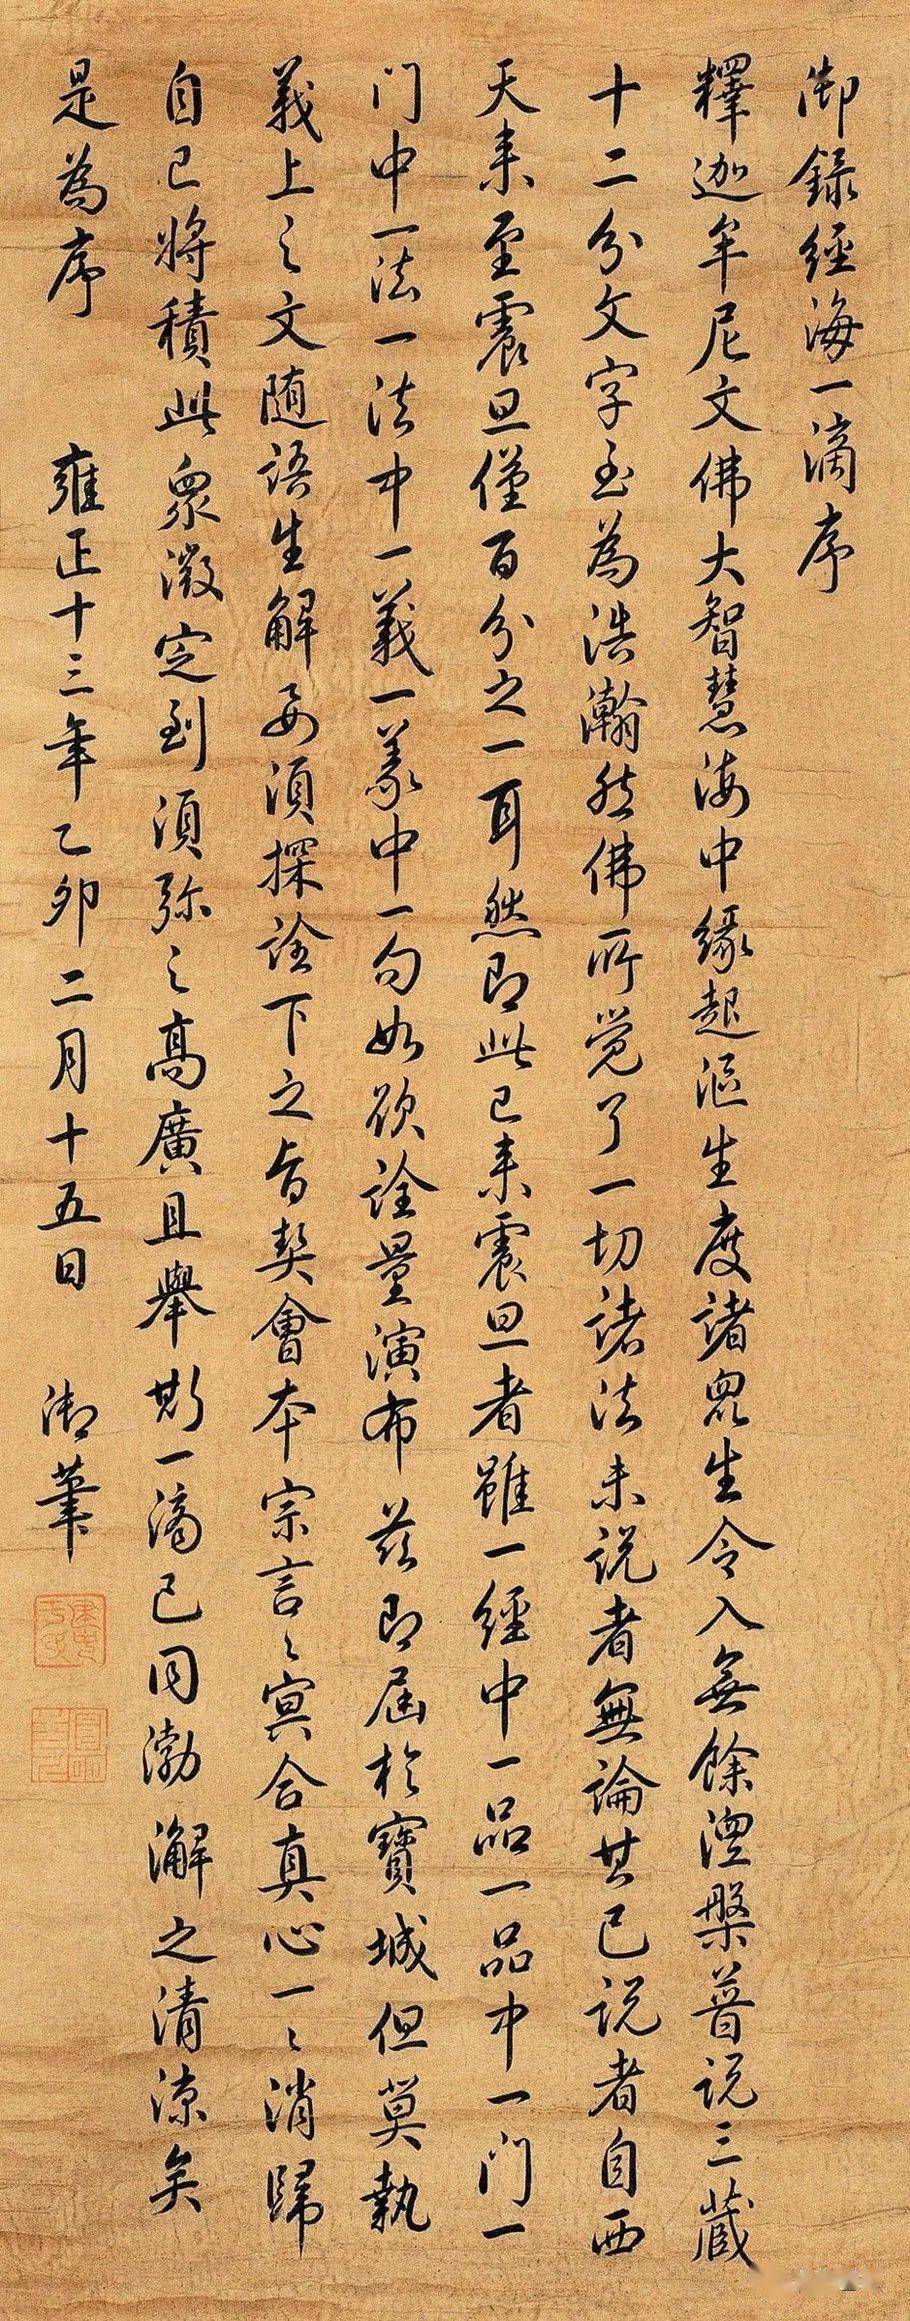 御錄經海一滴序
釋迦牟尼文佛大智慧海中緣起漚生度諸眾生令入無餘湼槃普説三藏
十二分文字至為浩瀚然佛所覺了一切諸法未説者無論其已説者自西
天来至震旦僅百分之一耳然即此已来震旦者雖一經中一品一品中一门一
门中一法一法中一義一義中一句如欲詮量演布茲即屆於寶城但莫執
義上之文隨語生解要須探詮下之旨契會本宗言〻冥合真心一〻消歸
自己將積此眾微定到須弥之高廣且舉斯一滴已同渤澥之清涼矣
是為序 雍正十三年乙卯二月十五日 御筆